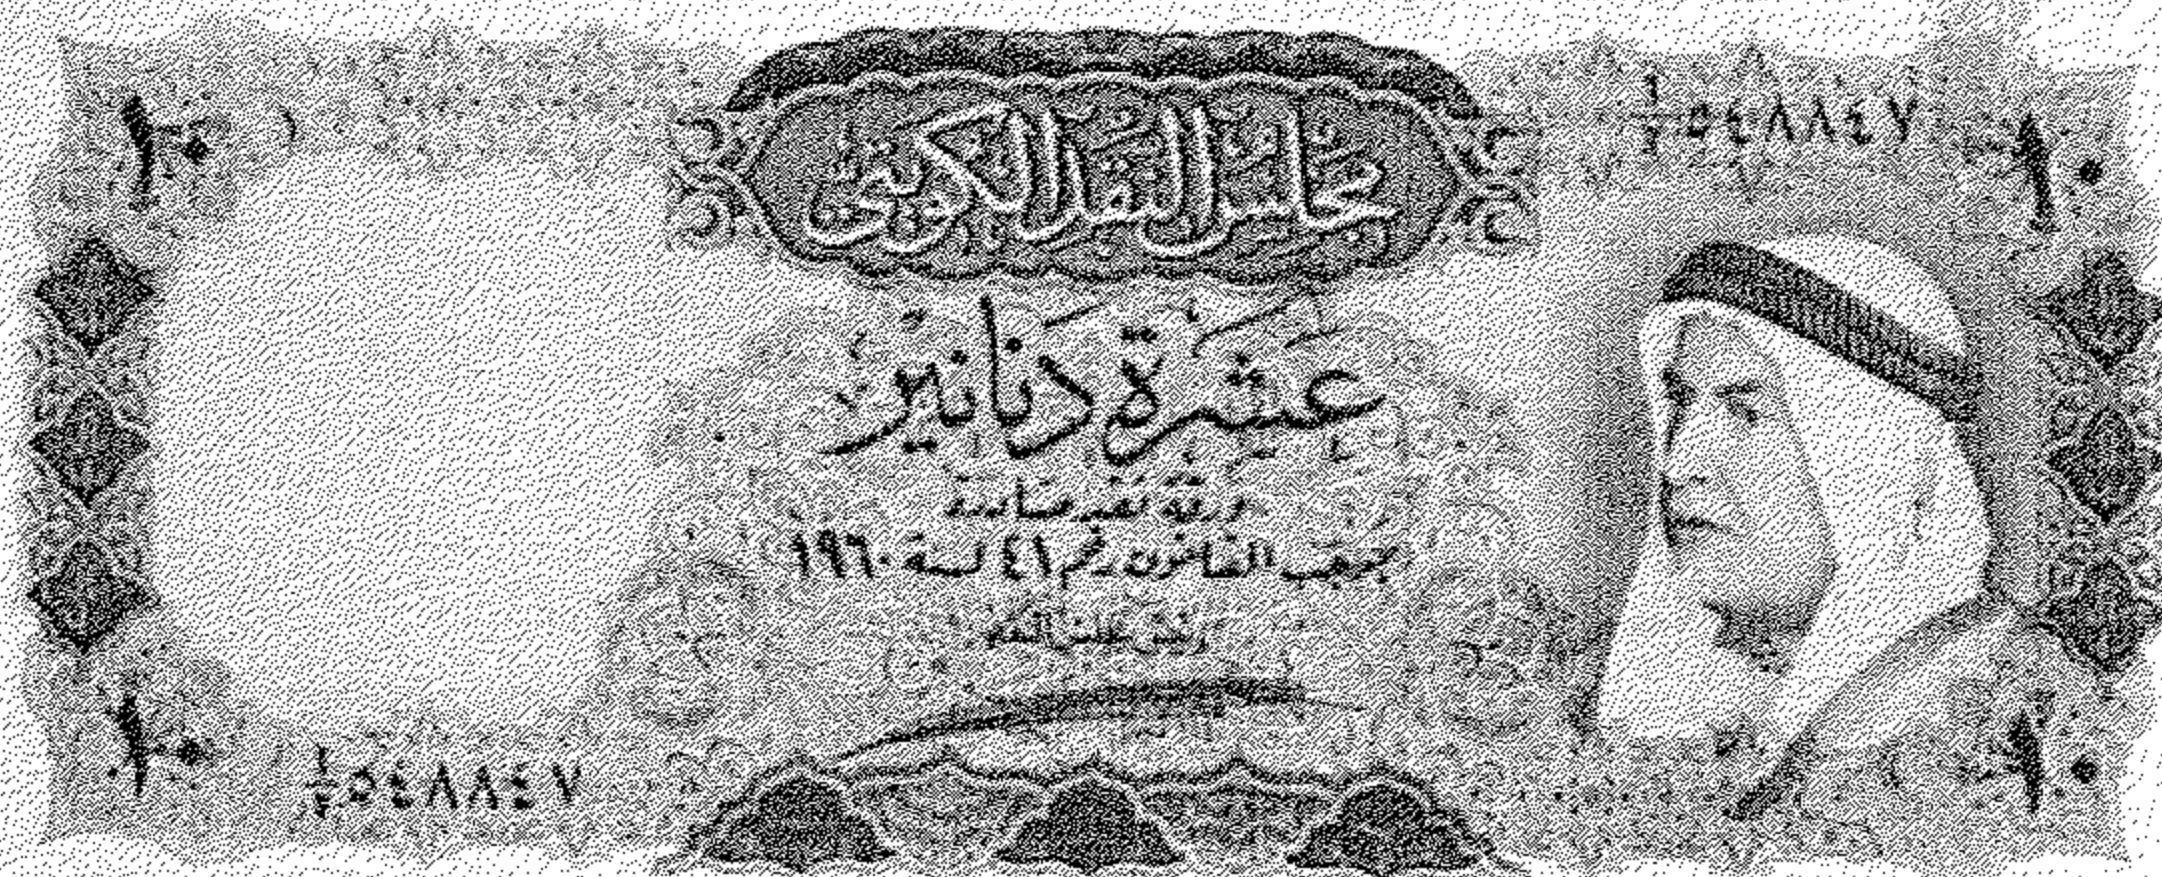 ١٠
٥٤٨٨٤٧
١٠
مجلس النقد الكويتي
عشرة دنانير
ورقة نقد صادرة
بموجب القانون رقم ٤١ لسنة ١٩٦٠
رئيس مجلس النقد
١٠
٥٤٨٨٤٧
١٠